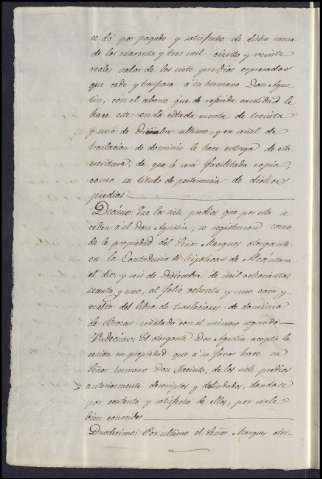 se dá por pagado y satisfecho de dicha suma
de los cuarenta y tres mil ciento y veinte
reales valor de los siete predios espresados
que cede y traspasa á su hermano Don Agus-
tin, con el abono que de referida cantidad le
hace este en la citada cuenta de treinta
y uno de Diciembre ultimo, y en señal de
traslacion de dominio le hace entrega de esta
escritura, de que le será facilitada copia,
como su titulo de pertenencia de dichos
predios
Decimo: Que los siete predios que por esta se
ceden á el Don Agustin, se registraron como
de la propiedad del Señor Marques otorgante
en la Contaduria de hipotecas de Alcántara
el diez y seis de Diciembre de mil ochocientos
cuenta y uno, al folio ochenta y uno cara y
vuelto del libro de traslaciones de dominio
de Brozas señalado con el número segundo
Undecimo: El otorgante Don Agustin acepta la
cesion en propiedad que á su favor hace su
Señor hermano Don Jacinto, de los siete predios
anteriormente descriptos y deslindados, dandose
por contento y satisfecho de ellos, por serle
bien conocidos
Duodecimo: Por ultimo el Señor Marques otor-